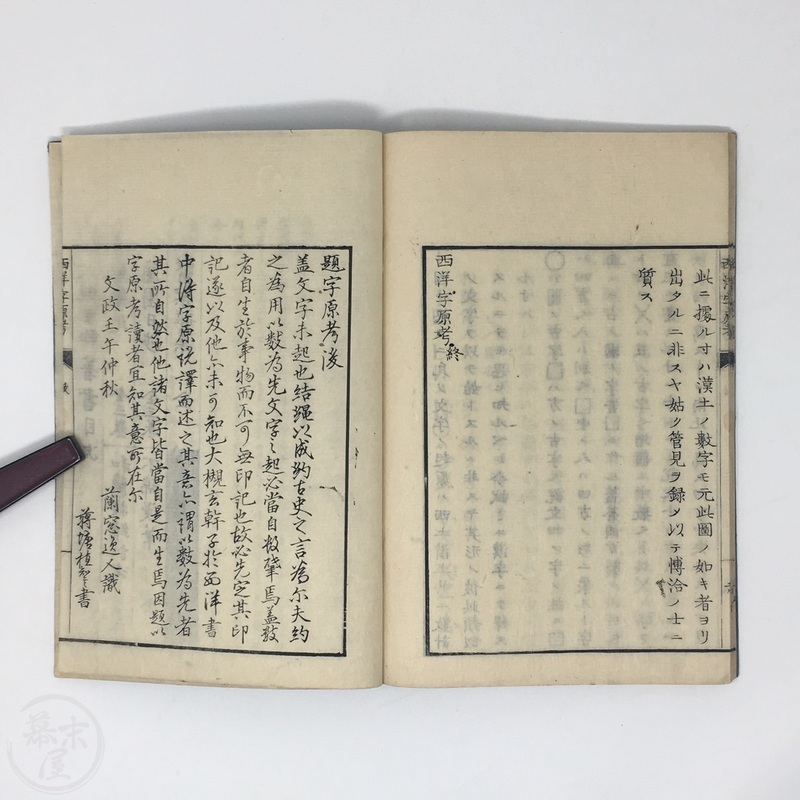 此ニ據ル寸ハ漢土ノ數字モ元此圖ノ如キ者ヨリ
出タルニ非スヤ姑ク管見ヲ録タ以テ博洽ノ士ニ
質ス
西洋字原考 終
題字原考後
蓋文字未起也結繩以成約古史之言為尔夫約
之為用以數為先文字之起必當自数肇焉蓋數
者自生於事物而不可無印記也故必先定其印
記遂以及他亦未可知也大槻玄幹子於西洋書
中得字原説譯而述之其意亦謂以數為先者
其所自然也他諸文字皆當自是而生焉因題以
字原考讀者宜知其意所在尓
文政壬午仲秋
蘭窓逸人識
蒋塘植 書
西洋字原考
幕末屋